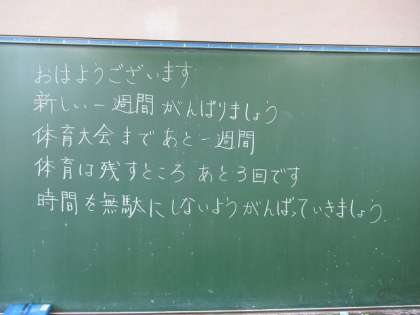 おはようございます
新しい一週間がんばりましょう
体育大会まであと一週間
体育は残すところ あと3回です
時間を無駄にしないようがんばっていきましょう